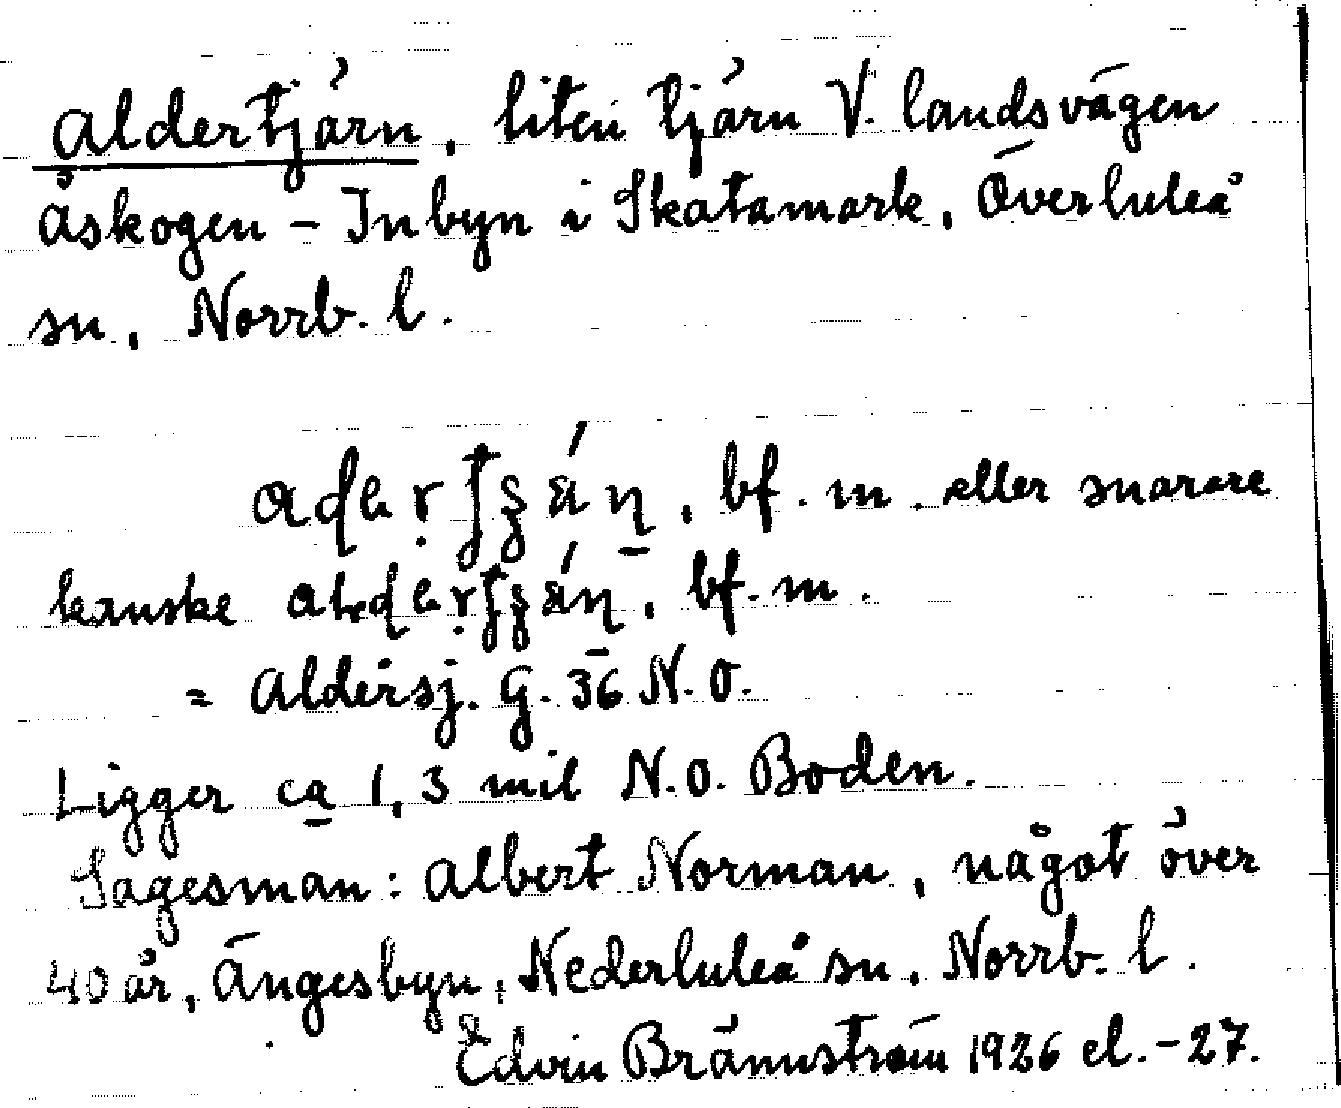 Aldertjärn, liten tjärn V. landsvägen
Åskogen – Inbyn i Skatamark, Överluleå
sn, Norrb. l.
bf. m. eller snarare
kanske bf. m.
= Aldersj. G. 36 N.O.
Ligger ca 1,3 mil N.O. Boden.
Sagesman: Albert Norman, något över
40 år, Ängesbyn, Nederluleå sn, Norrb. l.
Edvin Brännström 1926 el. -27.